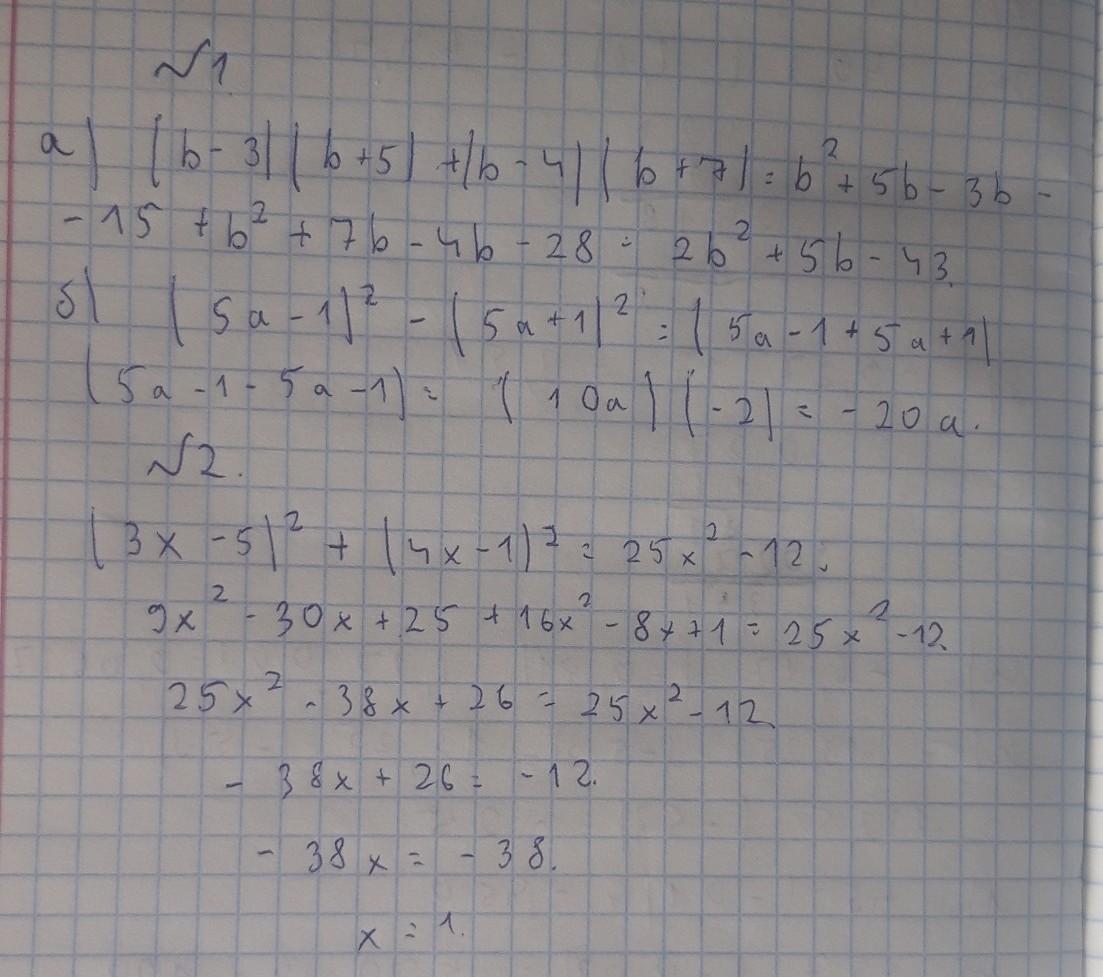 №1
а) (b-3)(b+5)+(b-4)(b+7)=b²+5b-3b-
-15+b²+7b-4b-28=2b²+5b-43.
б) (5a-1)²-(5a+1)²=(5a-1+5a+1)
(5a-1-5a-1)=(10a)(-2)=-20a.
№2.
(3x-5)²+(4x-1)²=25x²-12;
9x²-30x+25+16x²-8x+1=25x²-12.
25x²-38x+26=25x²-12
-38x+26=-12.
-38x=-38.
x=1.